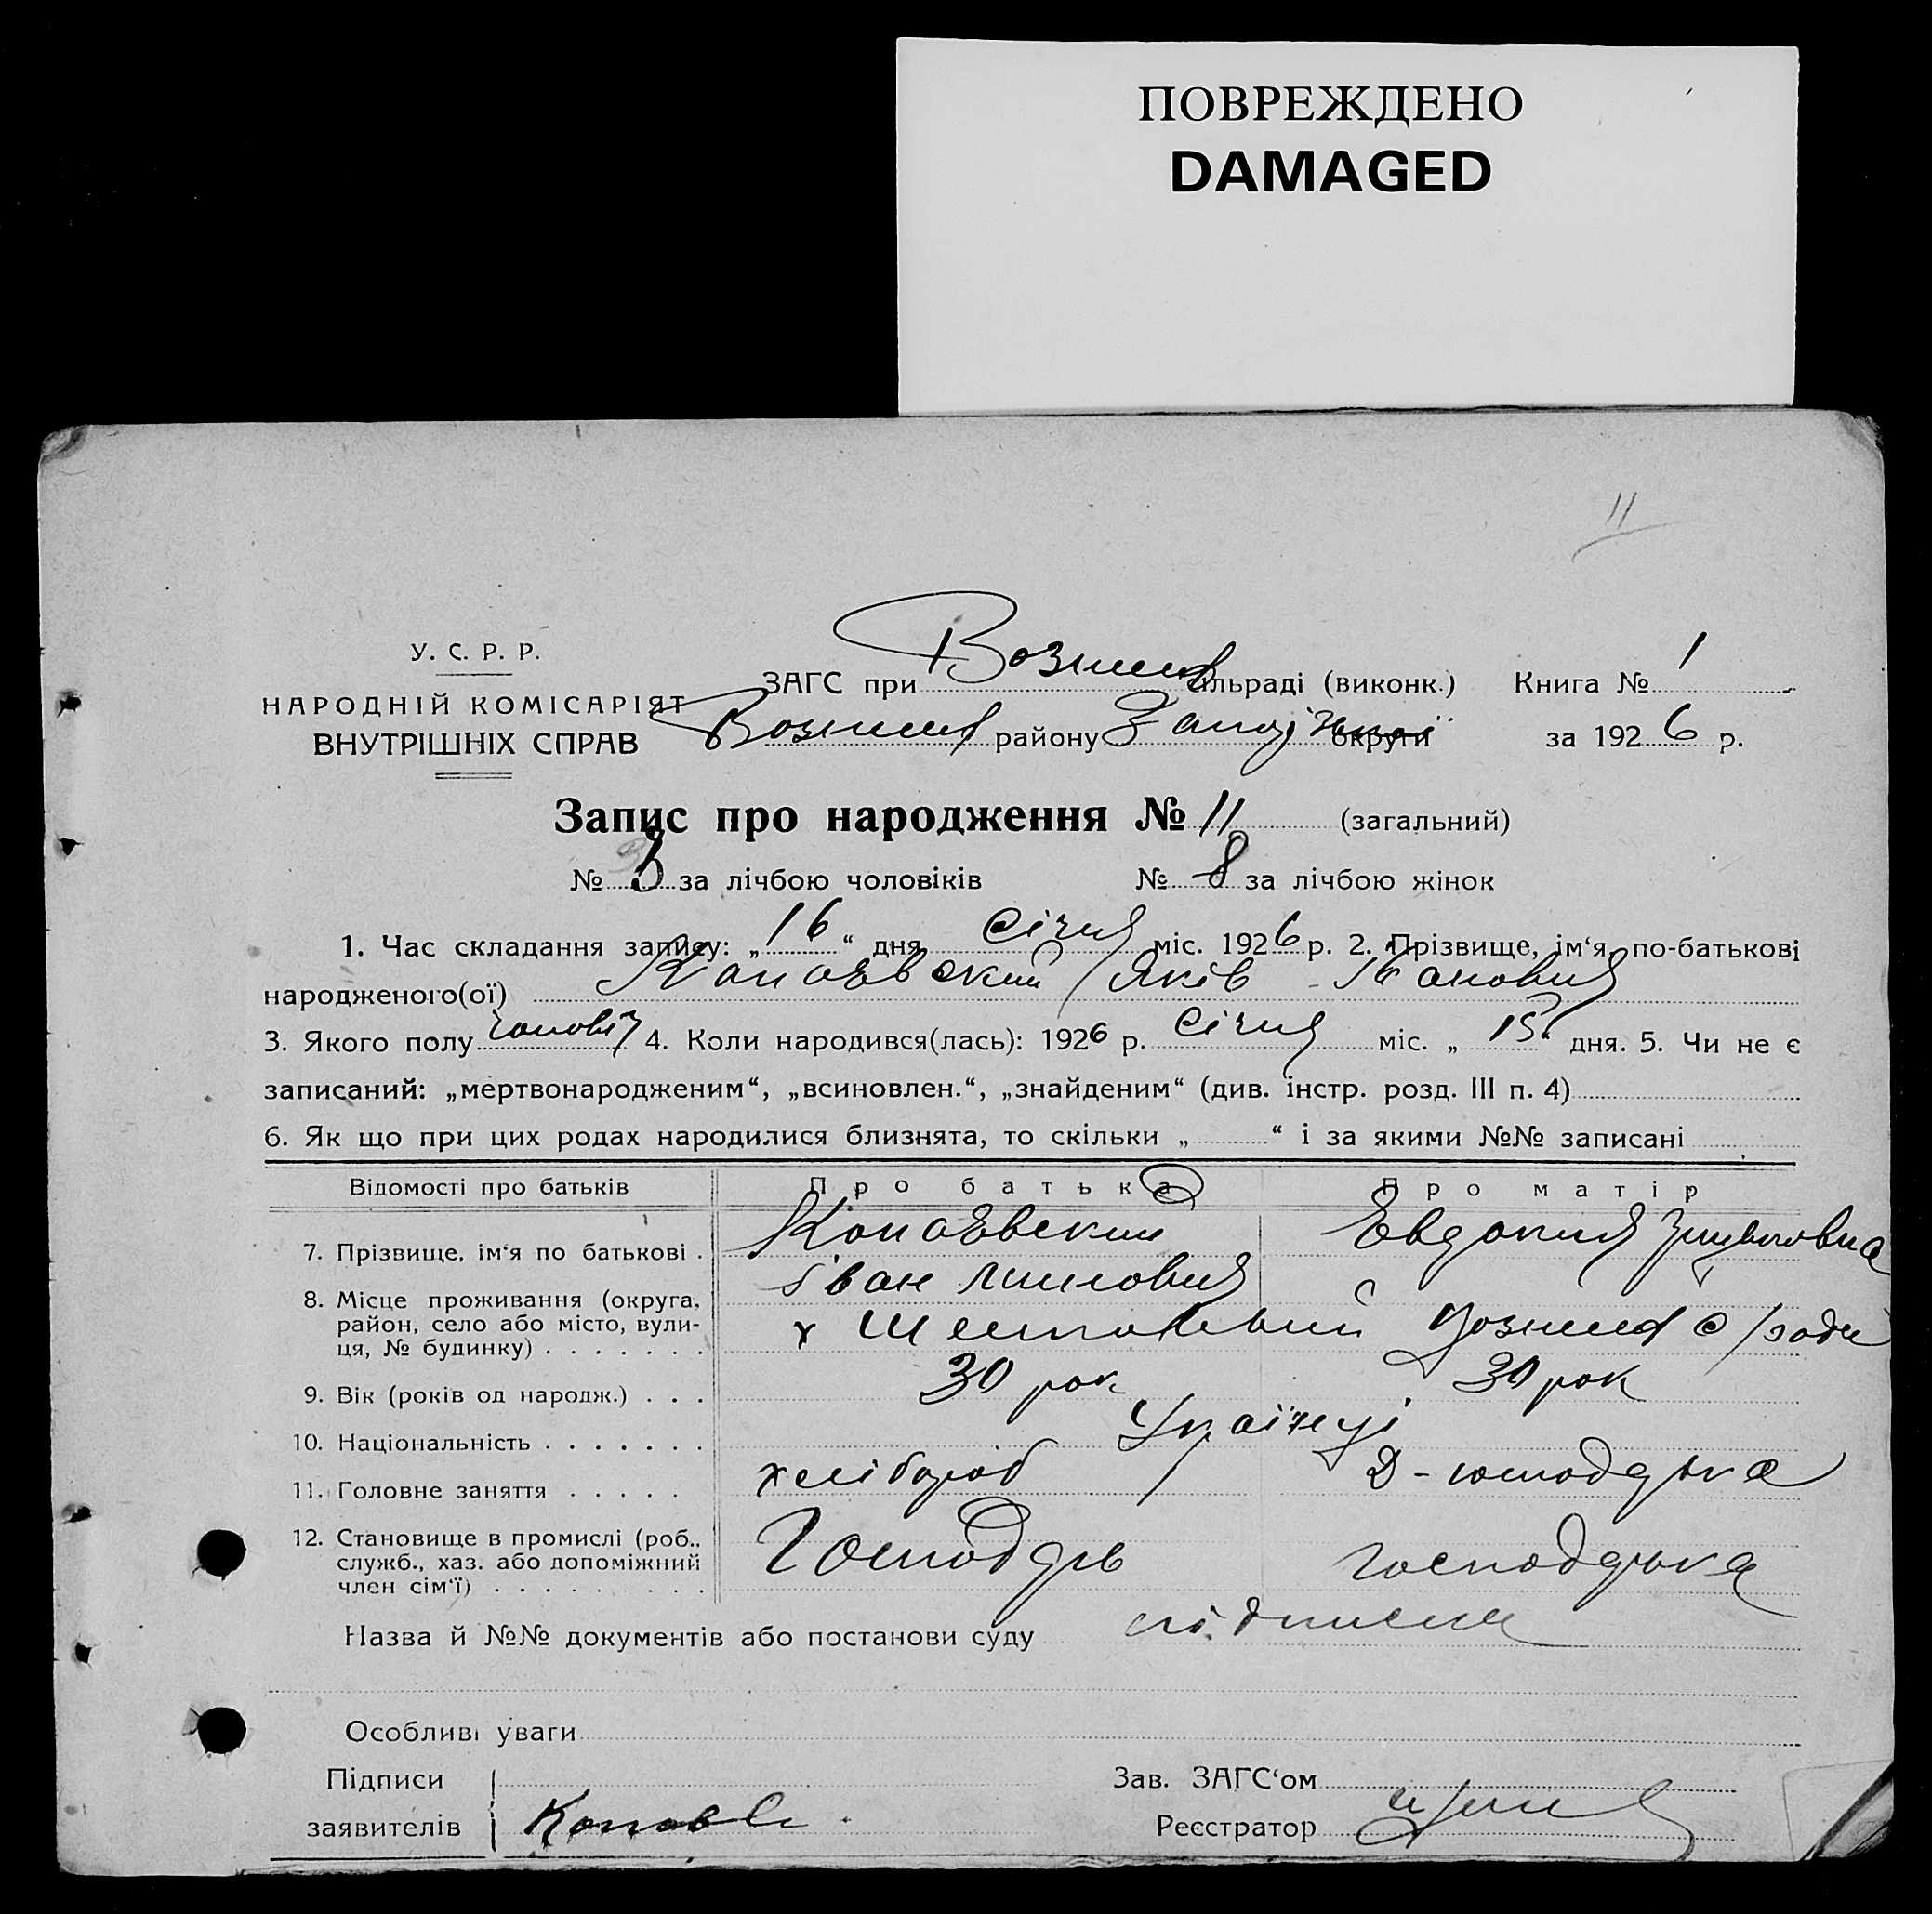 ПОВРЕЖДЕНО
DAMAGED
11
У. С. Р. Р.
НАРОДНІЙ КОМІСАРІЯТ
ВНУТРІШНІХ СПРАВ
ЗАГС при сільраді (виконк.) Книга № 1
району округи за 1926 р.
Запис про народження № 11 (загальний)
№ 3 за лічбою чоловіків № 8 за лічбою жінок
1. Час складання запису: „16“ дня Січня міс. 1926 р. 2. Прізвище, ім‘я, по-батькові
народженого(ої) Яків Іванович
3. Якого полу 4. Коли народився(лась): 1926 р. Січня міс. „15“ дня. 5. Чи не є
записаний: „мертвонародженим“, „всиновлен.“, „знайденим“ (див. інстр. розд. III п. 4)
6. Як що при цих родах народилися близнята, то скільки „ “ і за якими №№ записані
Відомості про батьків Про батька Про матір
7. Прізвище, ім‘я по батькові . Евдокия
Іван
8. Місце проживання (округа,
район, село або місто, вули-
ця, № будинку) . . . . . . .
9. Вік (років од народж.) . . . 30 рок 30 рок
10. Національність . . . . . . . Українці
11. Головне заняття . . . . . хлібороб Д-господарька
12. Становище в промислі (роб.,
служб., хаз. або допоміжний
член сім‘ї) . . . . . . . . . Господарь господарька
Назва й №№ документів або постанови суду підписка
Особливі уваги
Підписи
заявителів
Зав. ЗАГС‘ом
Реєстратор